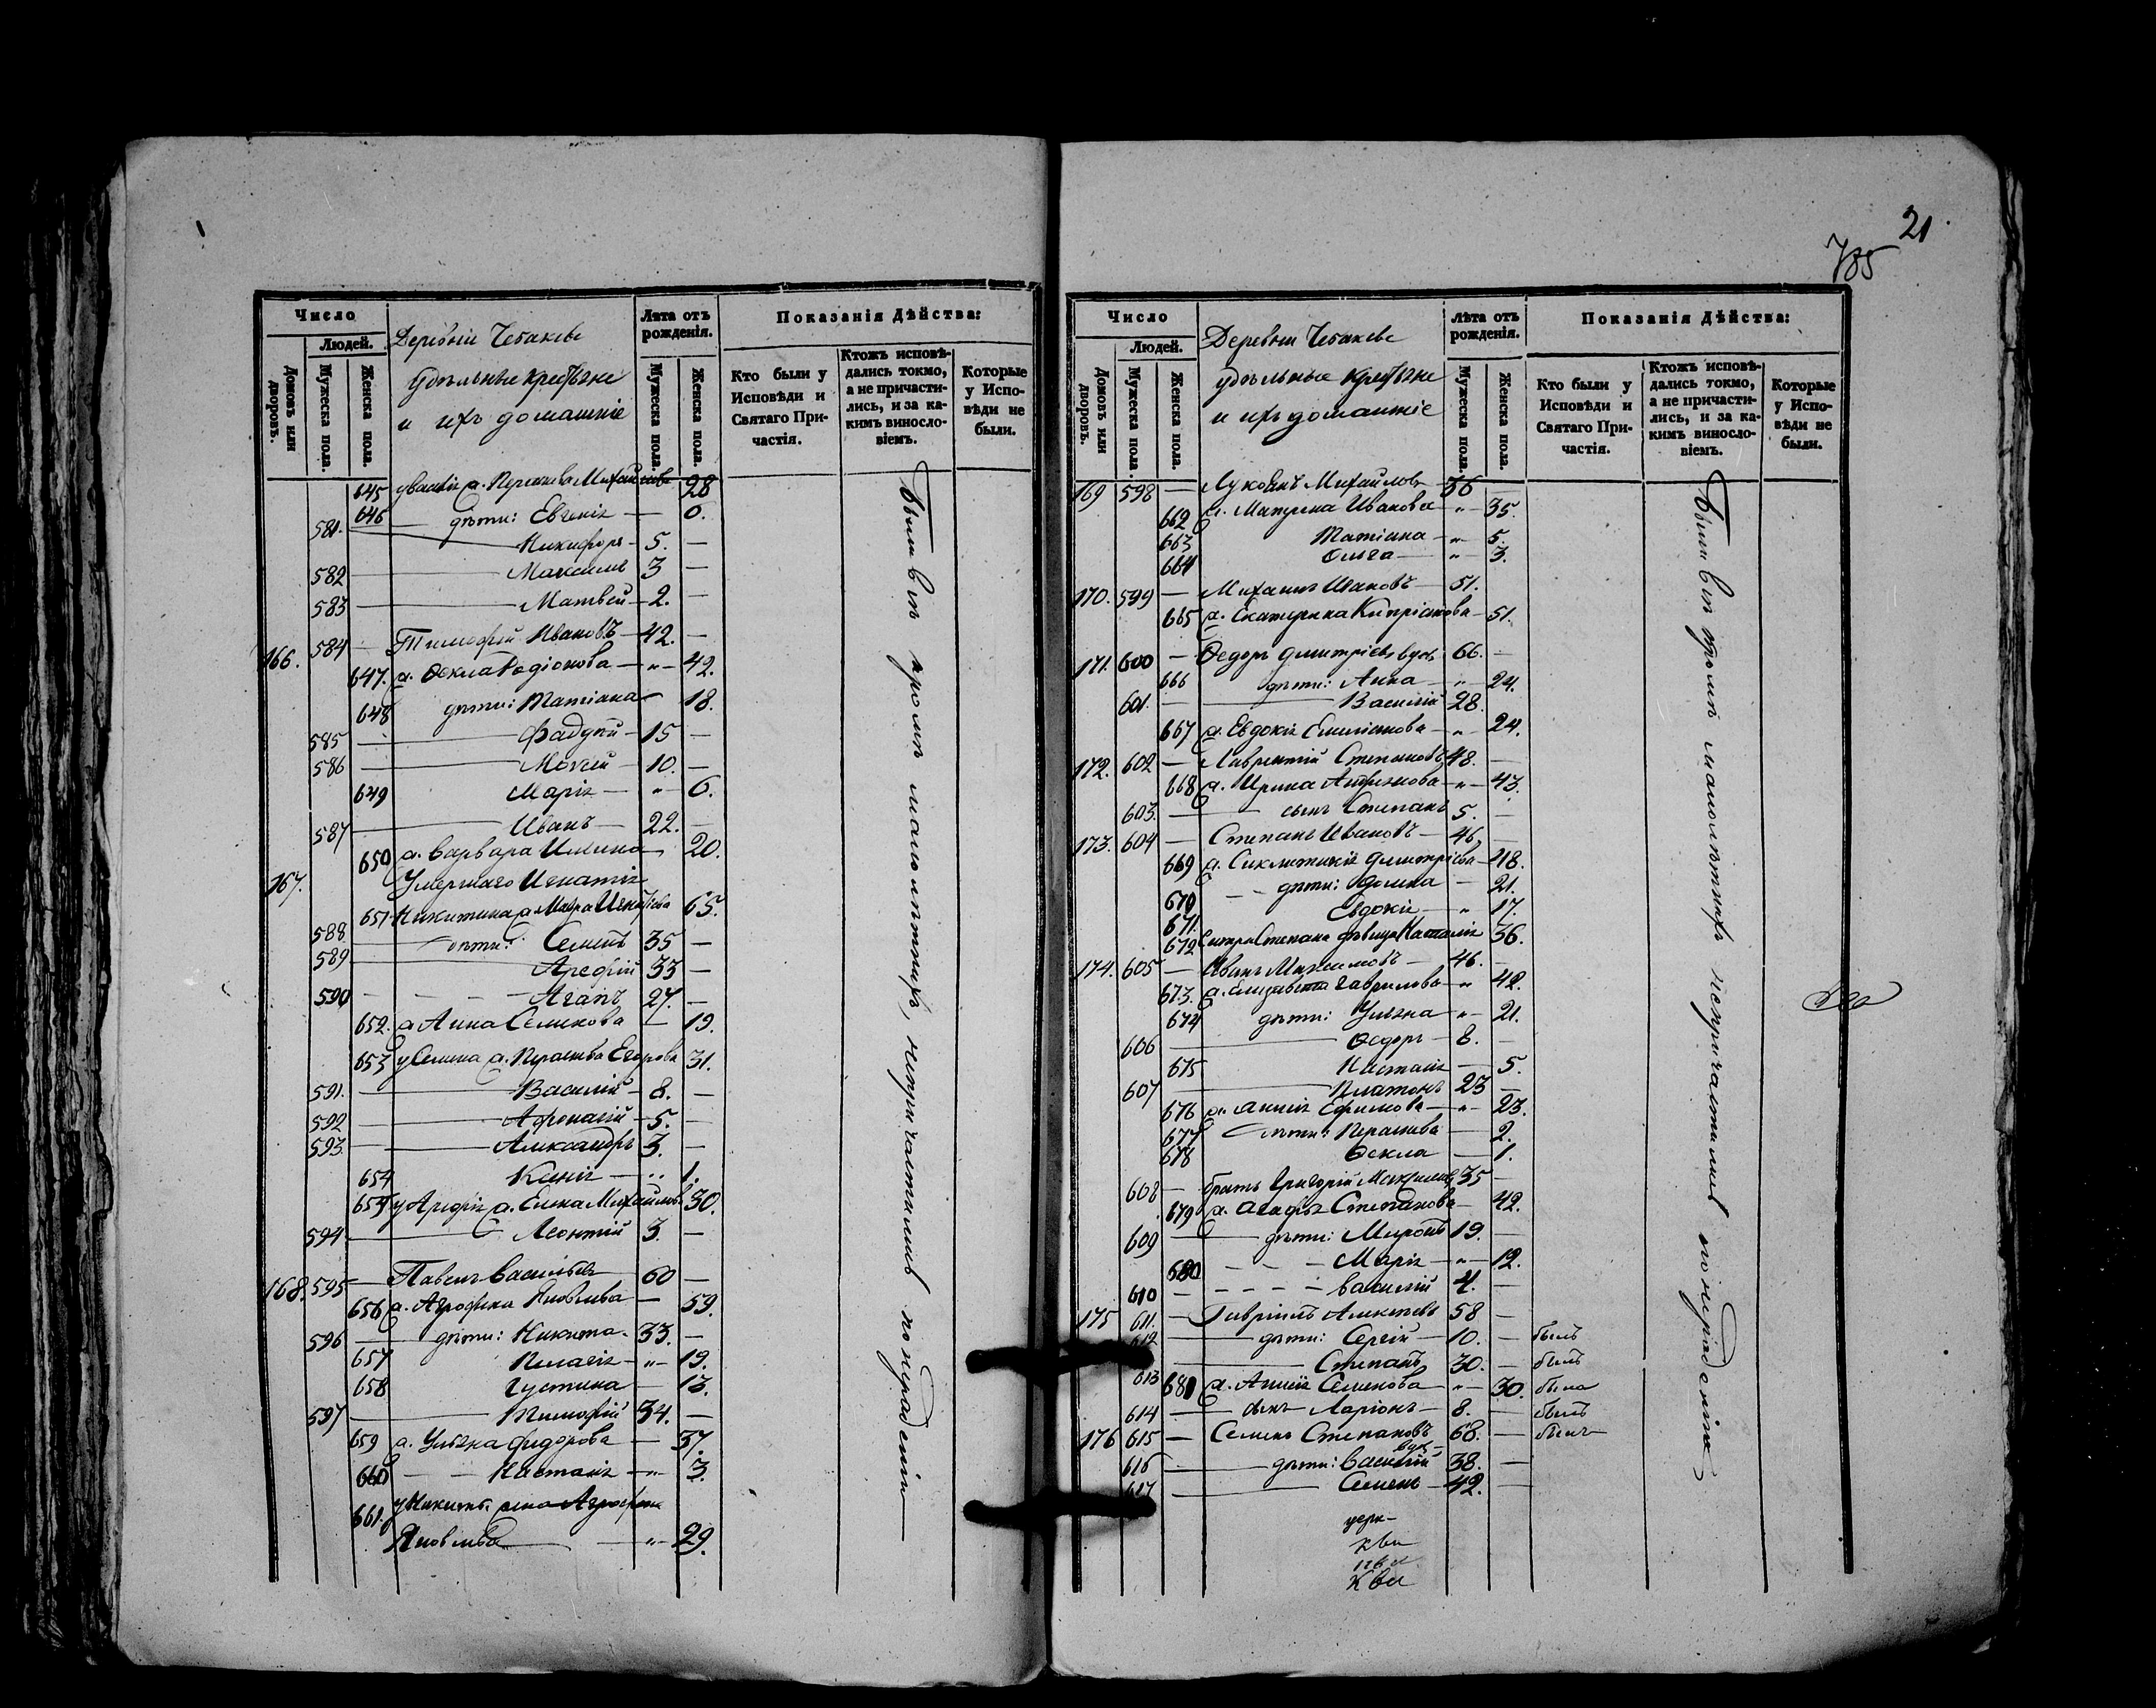 21.
785
Число
Людей.
Домовъ или дворовъ.
Мужеска пола.
Женска пола.
Деревни Чебакова
Удѣльные крестьяне
и ихъ домашніе
Лѣта отъ рожденія.
Мужеска пола.
Женска пола.
Показанія Дѣйства:
Кто были у Исповѣди и Святаго Причастія.
Ктожъ исповѣдались токмо, а не причастились, и за какимъ винословіемъ.
Которые у Исповѣди не были.
645 ж. Михайлова 28
646 дѣти: Евгенія — 0.
581. Никифоръ — 5. —
582 Максимъ 3 —
583 Матвей — 2. —
166. 584 — Тимофей Ивановъ — 42. —
647. ж. Ѳекла Родіонова — „ — 42.
648 дѣти: Татіана 18.
585 — Фадѣй — 15 —
586 — Мокей — 10. —
649 Марія — „ 6.
587 — Иванъ — 22. —
650 ж. Варвара Ильина 20.
167. Умершаго Игнатія
651 Никитина ж. Мавра Игнатіева 65.
588 дѣти: Семенъ 35 —
589 Арефій 33 —
590 — Агапъ 27. —
652. ж. Анна Семенова — 19.
653 у Семена ж. Парасковья Егорова 31.
591. Василій — 8. —
592 Афонасій — 5. —
593 Александръ 3. —
654 Ксенія — „ 1.
655 у Арефія ж. Елена Михайлова 30.
594 — Леонтій 3. —
168. 595 — Павелъ Васильевъ 60 —
656 ж. Агрофена Яковлева — 59.
596 — дѣти: Никита 33. —
657 Пелагія — „ — 19.
658 Устина — 13.
597 — Тимофей 34. —
659 ж. Ульяна Федорова — 37.
660 — Настасія — „ 3.
661. у Никиты жена Агрофена
Яковлева — „ — 29.
Были всѣ кромѣ малолѣтнихъ, непричастились по нерадѣнію
Число
Людей.
Домовъ или дворовъ.
Мужеска пола.
Женска пола.
Деревни Чебакова
удѣльные крестьяне
и ихъ домашніе
Лѣта отъ рожденія.
Мужеска пола.
Женска пола.
Показанія Дѣйства:
Кто были у Исповѣди и Святаго Причастія.
Ктожъ исповѣдались токмо, а не причастились, и за какимъ винословіемъ.
Которые у Исповѣди не были.
169 598 — Лукоянъ Михайловъ 36 —
662 ж. Матрена Иванова — „ — 35.
663 Татіана — „ — 5.
664 Ольга — „ — 3.
170. 599 — Михаилъ Ивановъ — 51.
665 ж. Екатерина Кипріанова — 51.
171. 600 — Ѳедоръ Дмитріевъ вдов. 66. —
666 дѣти: Анна — „ — 24.
601. — Василій 28.
667 ж. Евдокія Емиліанова — „ — 24.
172. 602 — Лаврентій Степановъ 48. —
668 ж. Ирина — „ — 43.
603. — сынъ Степанъ 5. —
173. 604 — Степанъ Ивановъ — 46. —
669 ж. Сиклитикія Дмитріева — 48.
670 дѣти: Домна — 21.
671. Евдокія — „ 17.
672 Сестра Степана дѣвица Наталія 36.
174. 605 — Иванъ Максимовъ — 46. —
673. ж. Елизавета Гаврилова — „ 42.
674 дѣти: Ульяна — „ — 21.
606 — Ѳедоръ — 8. —
675 Настасія — 5.
607 — Платонъ 23 —
676 ж. Анисія Ефимова — „ — 23.
677 дѣти: Парасковья — 2.
678 Ѳекла — 1.
608 — братъ Григорій Максимовъ 35 —
679 ж. Агафія Степанова — 42.
609 — дѣти: Миронъ 19. —
680 — Марія — „ — 12.
610 — Василій 4. —
175 611. — Гавріилъ Алексѣевъ 58 —
612 — дѣти: Сергій — 10. — былъ
613 — Степанъ 30. — былъ
681 ж. Анисія Семенова — „ — 30. была
614 — сынъ Ларіонъ — 8. — былъ
176 615 — Семенъ Степановъ 68. — былъ
вдов.
616 — дѣти: Василій 38. —
617 — Семенъ — 42. —
церк-
кви
кви
Были всѣ кромѣ малолѣтнихъ непричастились по нерадѣнію